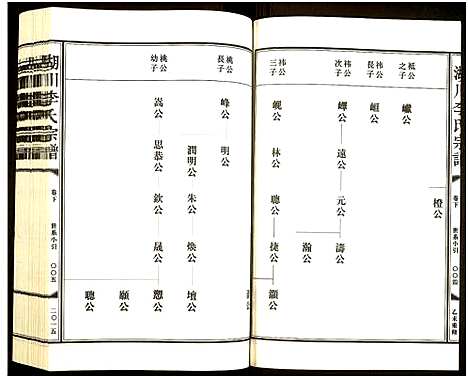 湖川李氏宗譜
卷下
世系小引
〇〇四
乙未重修
橙公
祗公之子
巘公
柿公長子
峘公
柿公次子
嶧公
遠公
元公
濤公
瀚公
柿公三子
峴公
林公
聰公
捷公
顯公
湖川李氏宗譜
卷下
世系小引
〇〇五
二〇一五
桃公長子
峰公
明公
潤明公
朱公
煥公
壇公
桃公幼子
嵩公
思恭公
欽公
晟公
愬公
願公
聽公